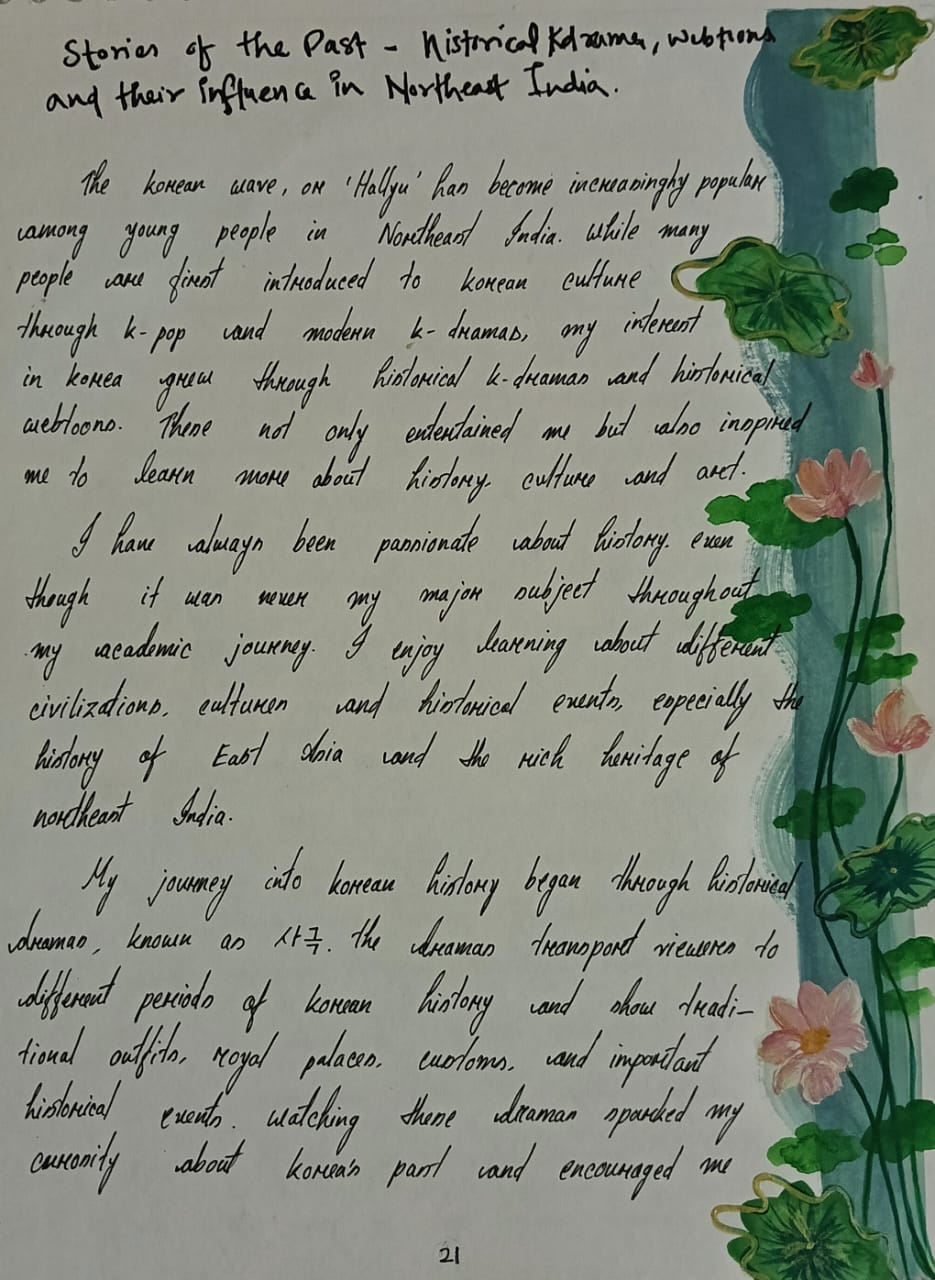 Stories of the Past - Historical Kdrama, webtoons
and their influence in Northeast India.
The korean wave, or 'Hallyu' has become increasinghy popular
among young people in Northeast India. While many
people are first introduced to korean culture
through k-pop and modern k-dramas, my interest
in korea grew through historical k-dramas and historical
webtoons. These not only entertained me but also inspired
me to learn more about history, culture and art.
I have always been passionate about history. even
though it was never my major subject throughout
my academic journey. I enjoy learning about different
civilizations, cultures and historical events, especially the
history of East Asia and the rich heritage of
northeast India.
My journey into korean history began through historical
dramas, known as 사극. the dramas transport viewers to
different periods of korean history and show tradi-
tional outfits, royal palaces, customs, and important
historical events. watching these dramas sparked my
curiosity about korea's past and encouraged me
21